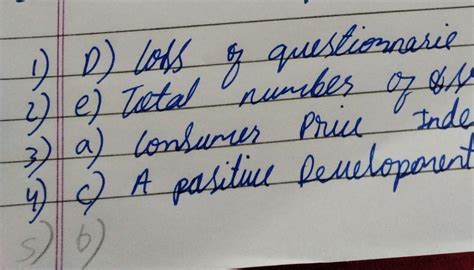 1) D) loss of questionnarie
2) e) Total number of
3) a) Consumer Price Inde
4) c) A pasitive Development
5) b)